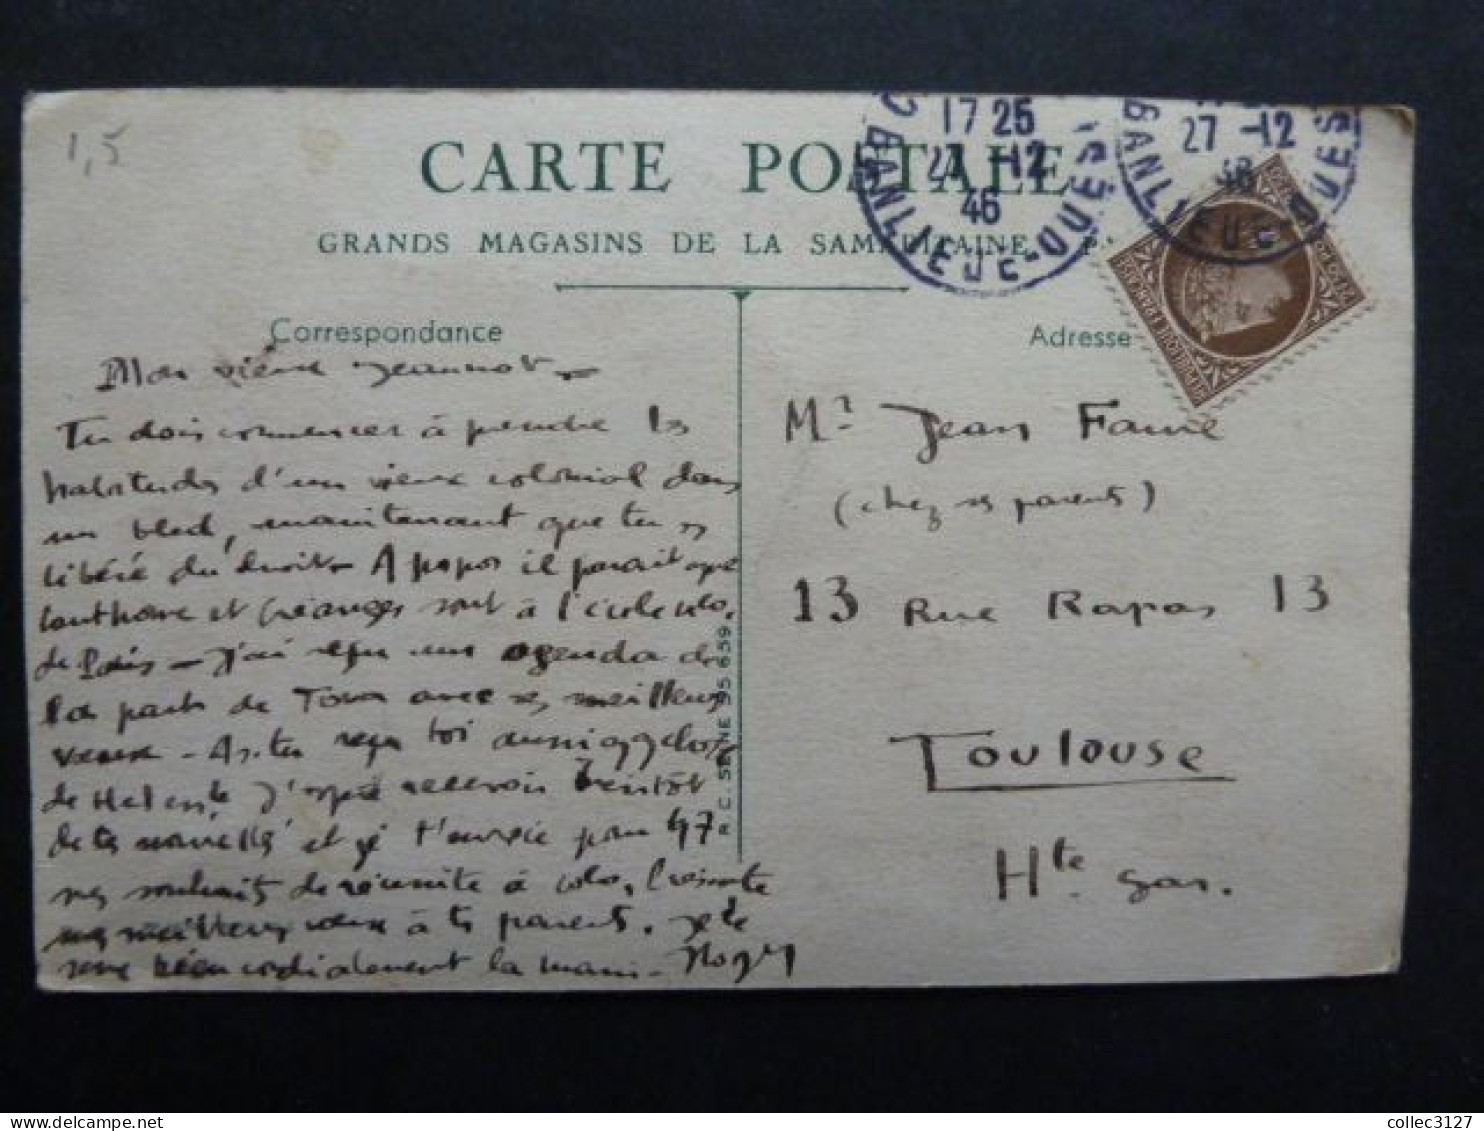 1,5
CARTE POSTALE
GRANDS MAGASINS DE LA SAMARITAINE
17 25
27 -12
46
BANLIEUE-OUEST
27 -12
46
BANLIEUE-OUEST
Correspondance
Mon vieux Jeannot -
Tu dois commencer à prendre les
habitudes d'un vieux colonial dans
un bled, maintenant que tu es
libéré du droit - A propos il parait que
et sont à l'école colo.
de Paris - J'ai reçu un agenda de
la part de avec ses meilleurs
vœux - As-tu reçu toi aussi
de J'espère recevoir bientôt
de tes nouvelles et je t'envoie pour 47
mes souhaits de réussite à colo,
mes meilleurs vœux à tes parents. Je te
serre bien cordialement la main - Roger
A. C. SEINE 95 659
Adresse
Mr Jean Faure
(chez ses parents)
13 Rue Rapas 13
Toulouse
Hte Gar.
collec3127